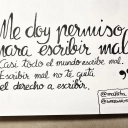 Me doy permiso
para escribir mal.
Casi todo el mundo escribe mal.
Escribir mal no te quita
el derecho a escribir.